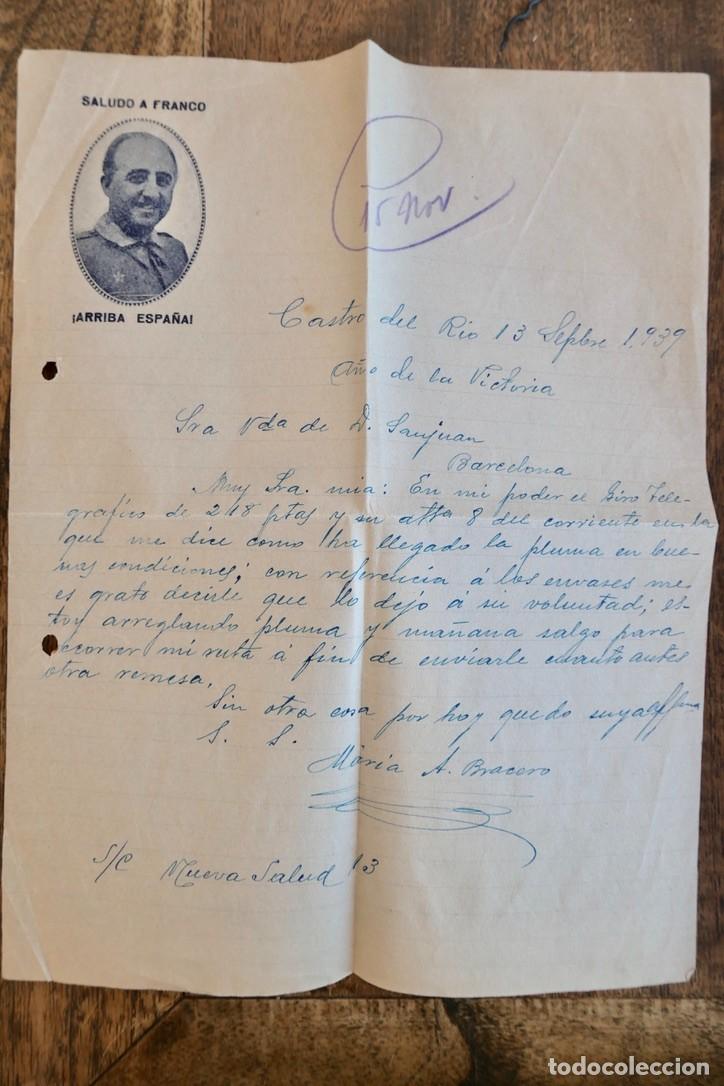 SALUDO A FRANCO
¡ARRIBA ESPAÑA!
15 Nov.
Castro del Rio 13 Sepbre 1.939
Año de la Victoria
Sra Vda de D. Sanjuan
Barcelona
Muy Sra. mia: En mi poder el Giro Tele-
gráfico de 218 ptas y su atta 8 del corriente en la
que me dice como ha llegado la pluma en bue-
nas condiciones; con referencia á los envases me
es grato decirle que lo dejo á su voluntad; es-
toy arreglando pluma y mañana salgo para
recorrer mi ruta á fin de enviarle cuanto antes
otra remesa.
Sin otra cosa por hoy quedo suya affma
S. S.
Maria A. Bracero
S/C Nueva Salud 13
todocoleccion